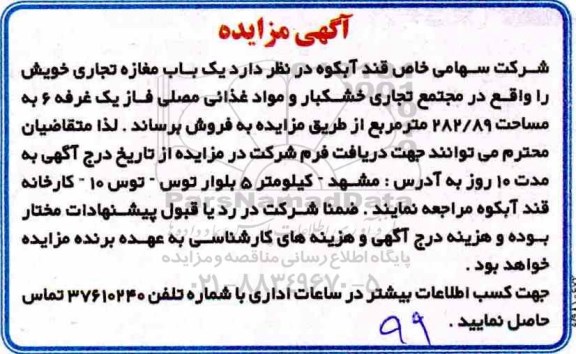 آگهی مزایده
شرکت سهامی خاص قند آبکوه در نظر دارد یک باب مغازه تجاری خویش
را واقع در مجتمع تجاری خشکبار و مواد غذائی مصلی فاز یک غرفه ۶ به
مساحت ۲۸۲/۸۹ مترمربع از طریق مزایده به فروش برساند . لذا متقاضیان
محترم می توانند جهت دریافت فرم شرکت در مزایده از تاریخ درج آگهی به
مدت ۱۰ روز به آدرس : مشهد - کیلومتر ۵ بلوار توس - توس ۱۰ - کارخانه
ParsNamadData
قند آبکوه مراجعه نمایند . ضمنا شرکت در رد یا قبول پیشنهادات مختار
بوده و هزینه درج آگهی و هزینه های کارشناسی به عهده برنده مزایده
پایگاه اطلاع رسانی مناقصه و مزایده
خواهد بود .
۰۲۱-۸۸۳۴۹۶۷۰-۵
جهت کسب اطلاعات بیشتر در ساعات اداری با شماره تلفن ۳۷۶۱۰۲۴۰ تماس
حاصل نمایید .
۹۹